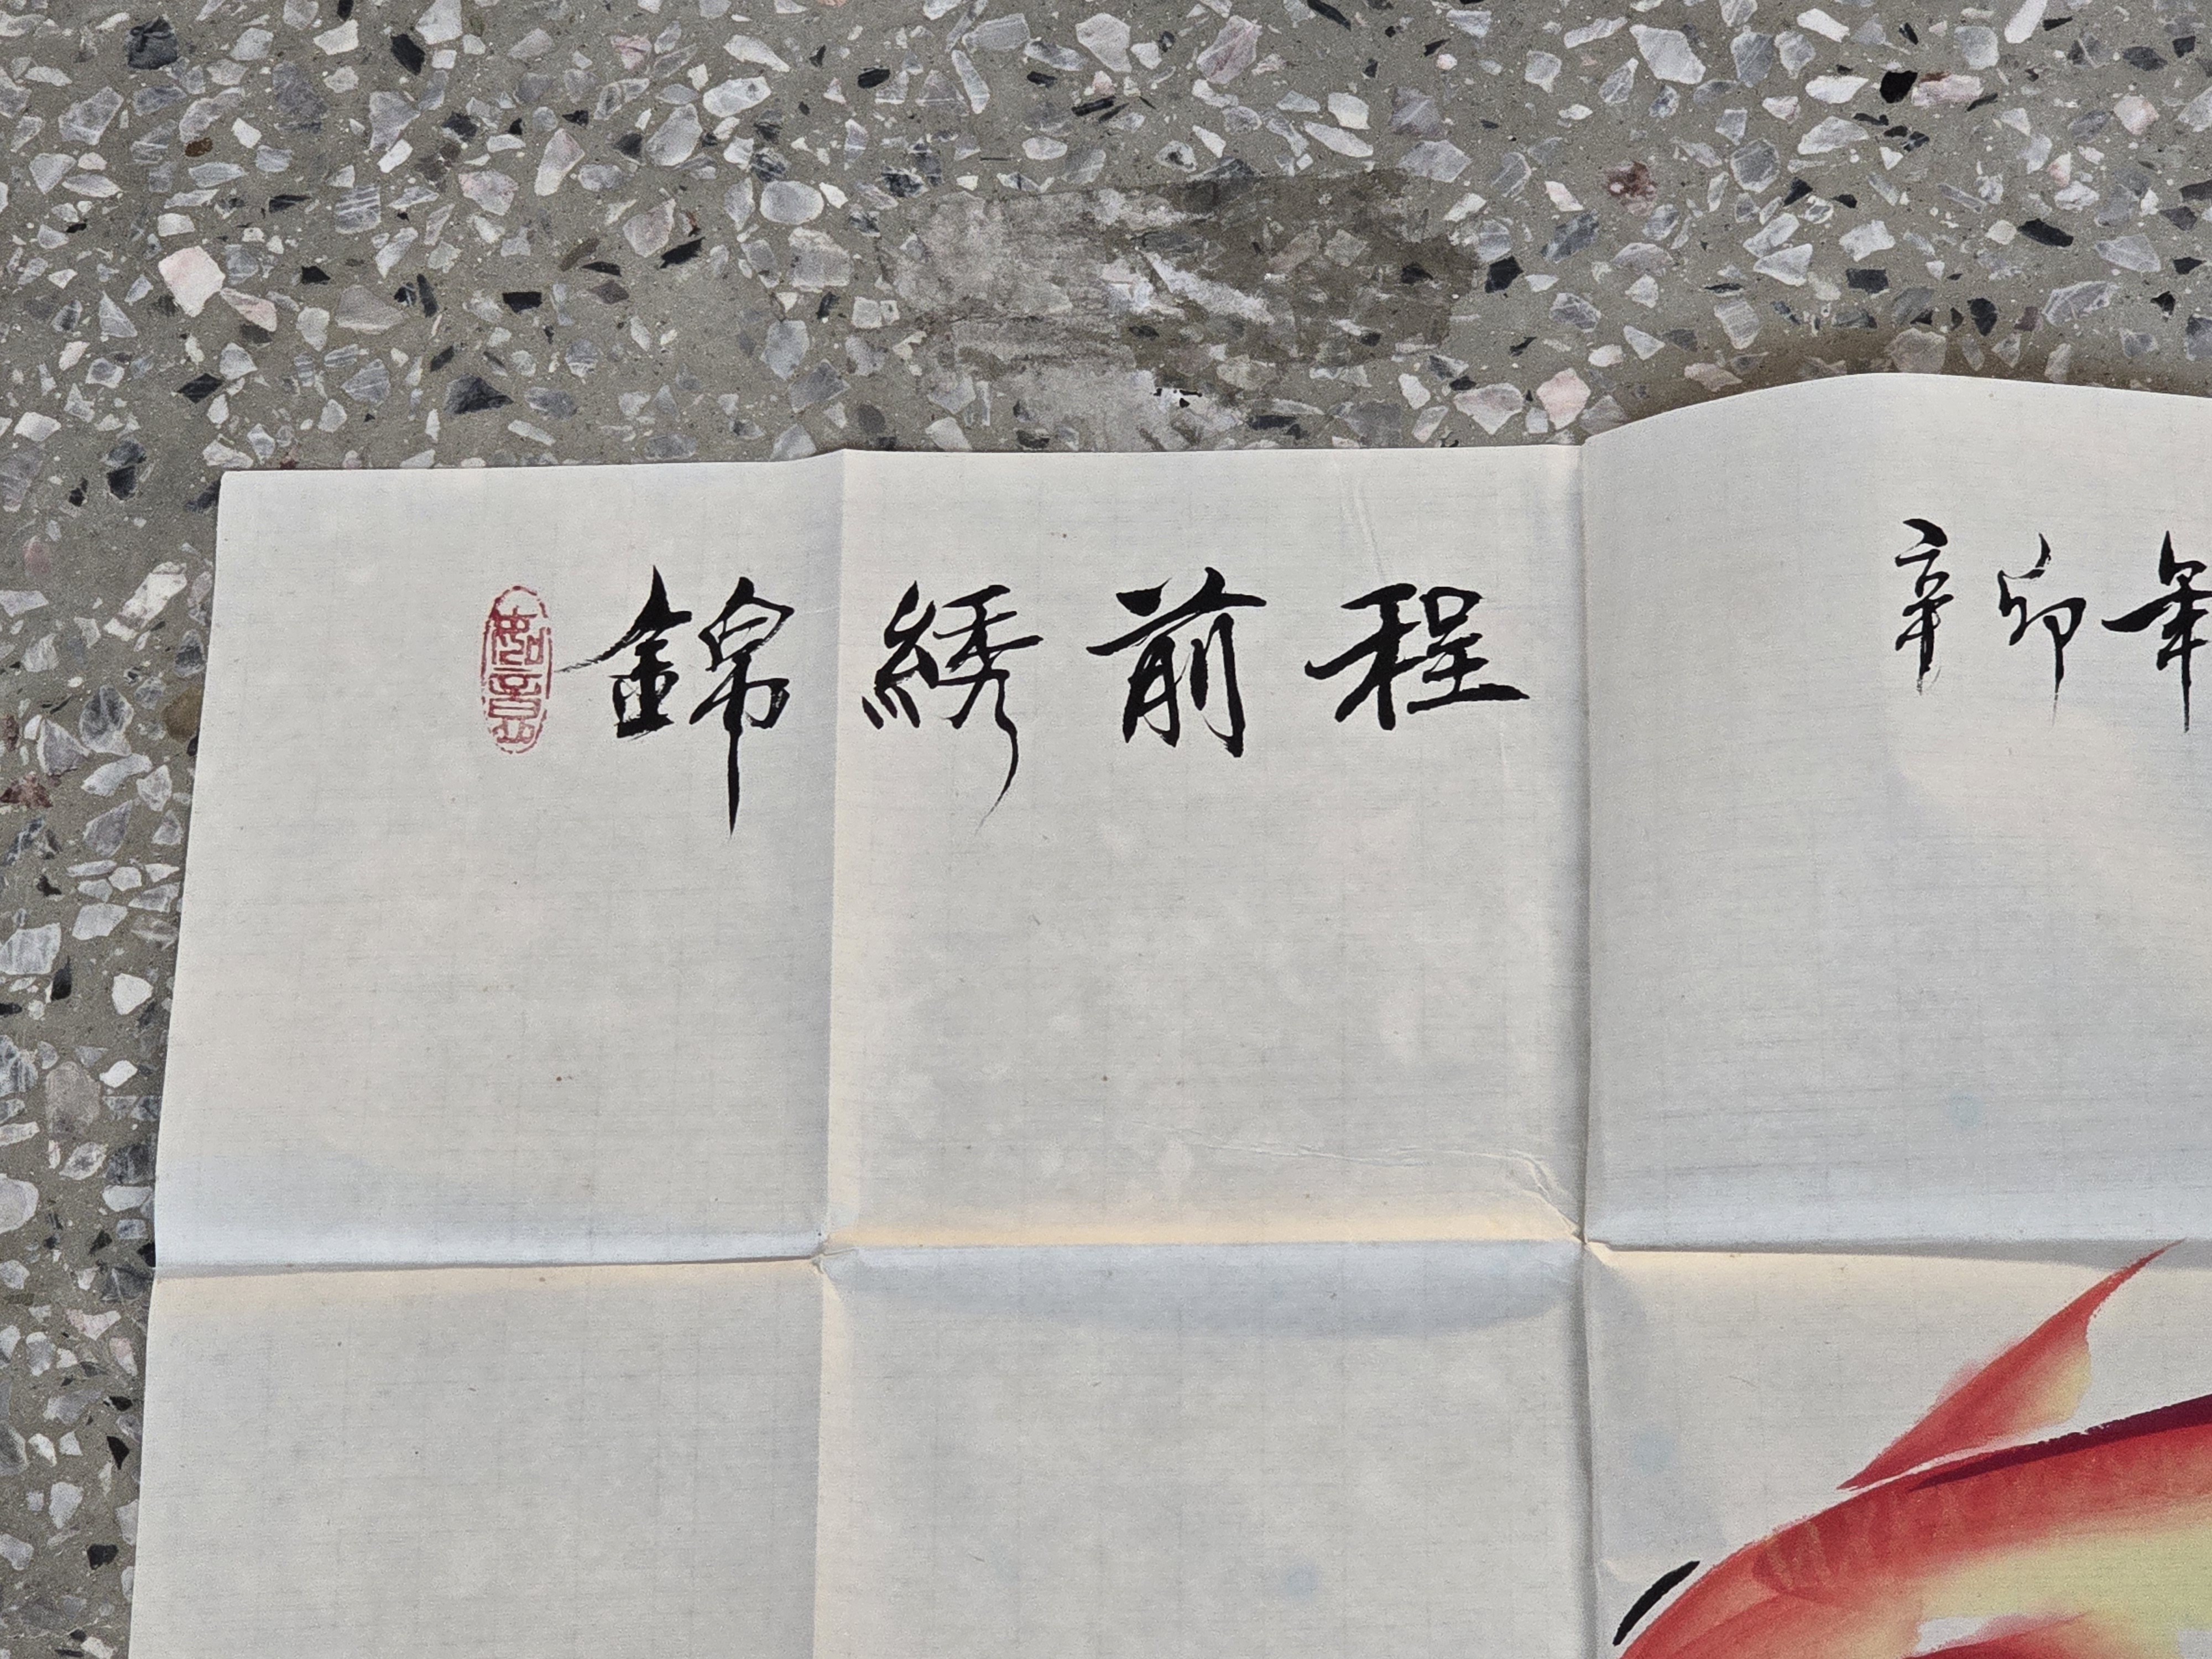 錦綉前程
辛卯年